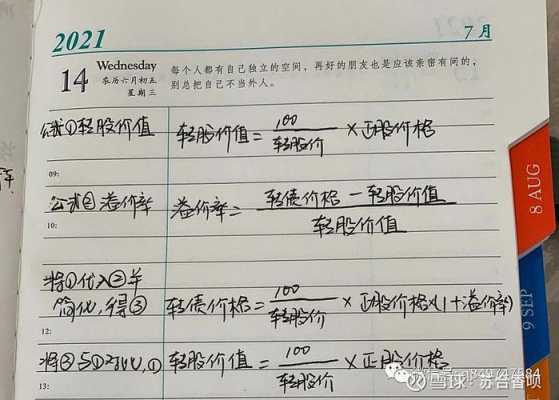 2021
7月
14
Wednesday
农历六月初五
星期三
每个人都有自己独立的空间，再好的朋友也是应该亲密有间的，
别总把自己不当外人。
公式①转股价值
转股价值= 100/转股价 ×正股价格
09:
公式② 溢价率
溢价率= 转债价格-转股价值/转股价值
10:
将①代入②并
简化，得③
转债价格= 100/转股价 ×正股价格×(1+溢价率)
12:
将③与①对比，①
转股价值= 100/转股价 ×正股价格
13:
8 AUG
9 SEP
雪球：苏合香呗